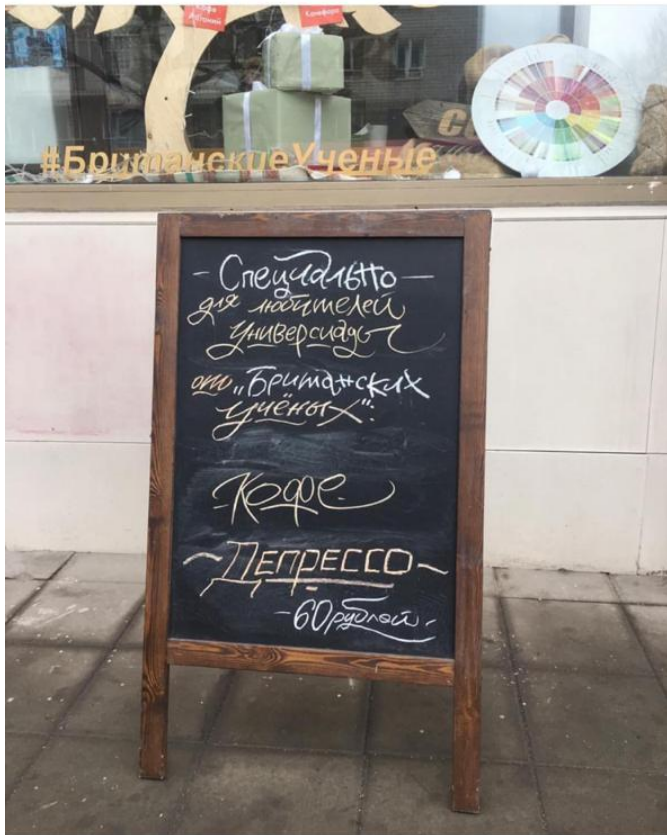 Кофе
#БританскиеУченые
- Специально -
для любителей
универсиады
от "Британских
учёных":
Кофе
~ Депрессо ~
- 60 рублей -